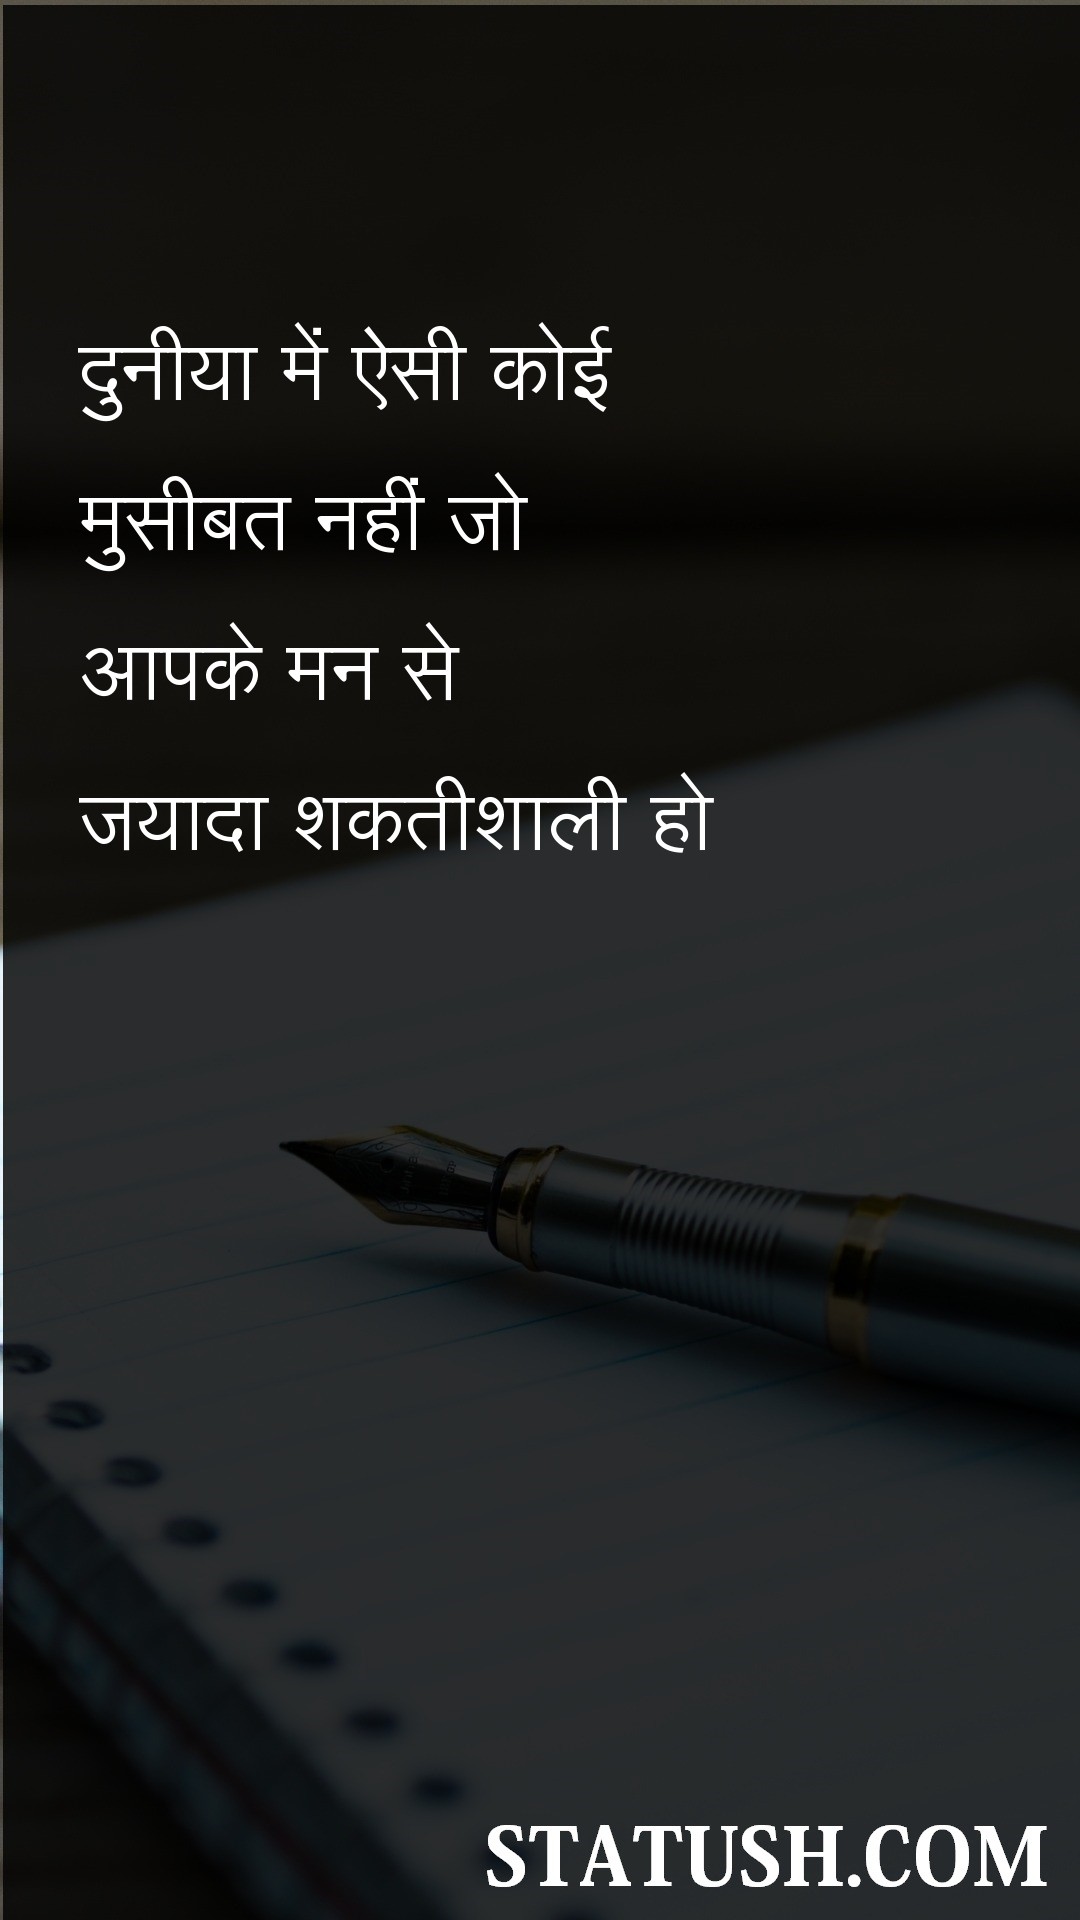 दुनीया में ऐसी कोई
मुसीबत नहीं जो
आपके मन से
जयादा शकतीशाली हो
STATUSH.COM